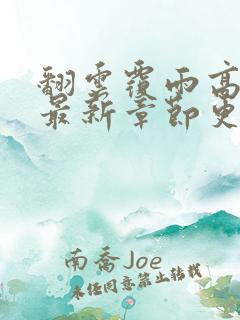 翻云覆雨高
最新章节更
南乔Joe
未经同意禁止转载